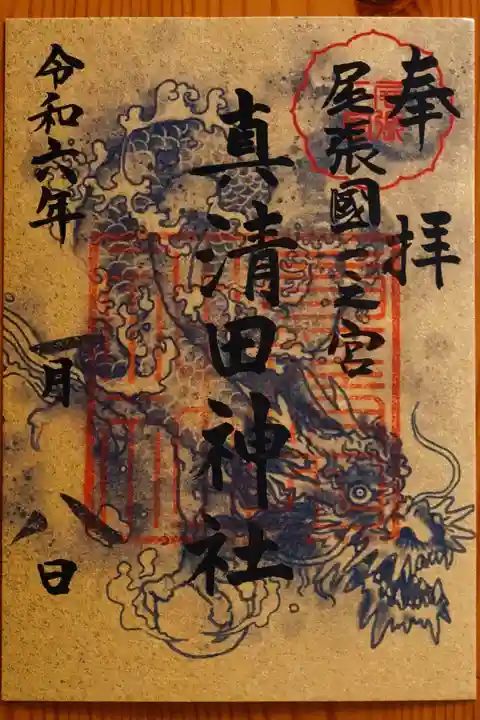 奉拝
尾張國一之宮
真清田神社
令和六年一月八日